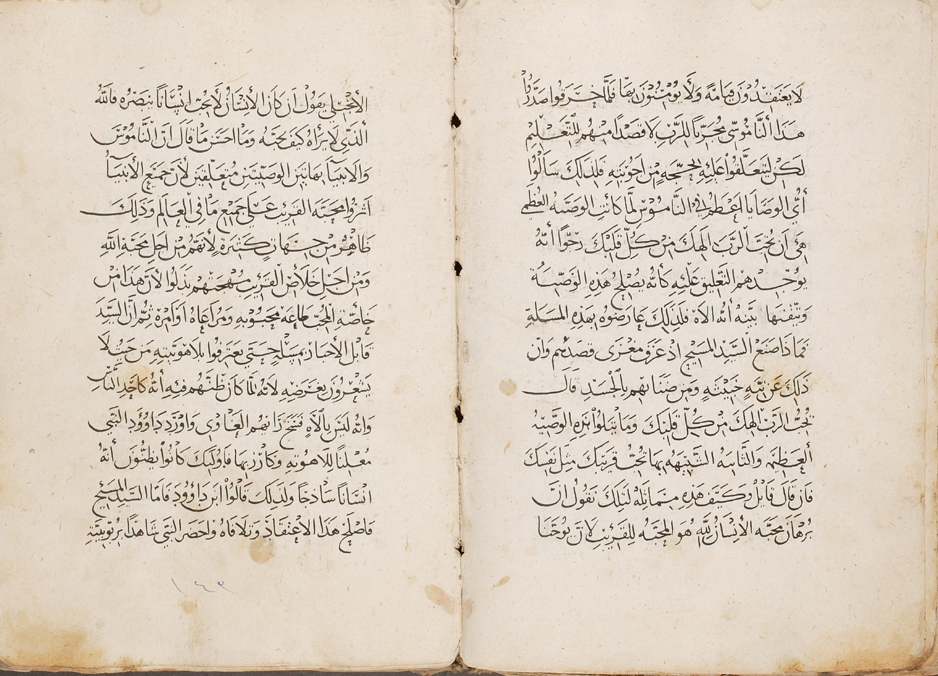 لا يعتقدون قيامة ولا يؤمنون بها فلما خرقوا صدروا
هذا الناموسي مجربًا للرب لا قصدًا منهم للتعليم
لكن ليتعلقوا عليه بحجة من اجوبته فلذلك سألوا
أي الوصايا اعظم في الناموس لما كانت الوصية العظمى
هي أن تحب الرب الهك من كل قلبك رجوا أنه
يوجدهم التعليق عليه كأنه يصلح هذه الوصية
بيته أنه الاه فلذلك عارضوه بهذه المسلة
فماذا صنع السيد المسيح اذ عرف مغزى قصدهم وان
ذلك عن نية خبيثة ومرضنا بهم بالجسد قال
تحب الرب الهك من كل قلبك وما هذه الوصية
العظمى والثانية الشبيهه بها تحب قريبك مثل نفسك
فان قال قايل وكيف هذه مماثلة لتلك نقول ان
برهان محبة الانسان لله هو المحبة للقريب لان يوحنا
الانجيلي يقول ان كان الانسان لا يحب انسانًا يبصره فالله
الذي لا يراه كيف يحبه وما احسن ما قال ان الناموس
والانبيآ بهاتين الوصيتين متعلقين لان جميع الأنبيآ
آثروا محبة القريب على جميع ما في العالم وذلك
ظاهر من جهات كثيرة لأنهم من اجل محبة الله
ومن اجل خلاص القريب مهجتهم بذلوا لان هذا من
خاصة المحب طاعة محبوبه ومراعاة أوامره ثم أن السيد
قابل الأحبار بمسلة حتى يعترفوا بلاهوتيته من حيث لا
يشعرون بغرضه لأنه لما كان ظنهم فيه أنه كاحد الناس
وانه ليس بالاه فسخ رأيهم الغاوي واورد داوود النبي
معلنًا للاهوته وكارز بها فاوليك كانوا يظنون أنه
انسانًا ساذجًا ولذلك قالوا ابن داوود فاما السيد المسيح
فاصلح هذا الاعتقاد وتلافاه واحضر النبي شاهدًا بربوبيته
١٤٩